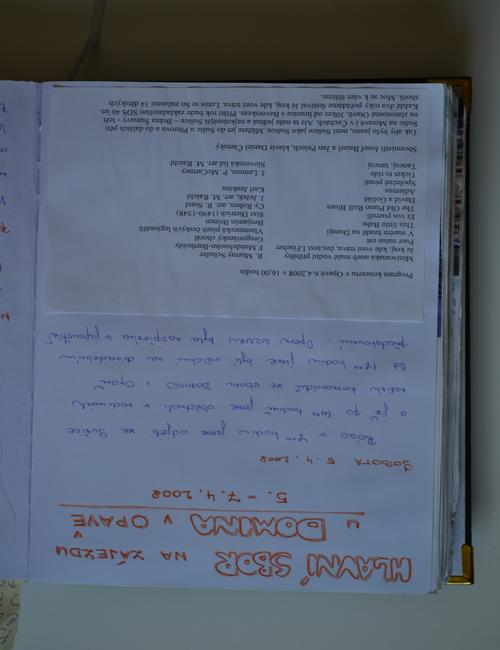 HLAVNÍ SBOR NA ZÁJEZDU
U DOMINA V OPAVĚ
5. – 7. 4. 2008
SOBOTA 5. 4. 2008
Ráno v 7⁰⁰ hodin jsme odjeli ze Sušice
a již po 14⁰⁰ hodině jsme obědvali v rodinách
našich kamarádů ze sboru DOMINO v Opavě
Od 17⁰⁰ hodin jsme byli všichni na divadelním
představení. Opera WERTHER byla nazpívána v
Program koncertu v Opavě 6.4.2008 v 16,00 hodin
Miniwanka aneb malé vodní příběhy R. Murray Schafer
Je kraj, kde voní tráva, čes.text I.Fischer F Mendelssohn-Bartholdy
Puer natus est Gregoriánský chorál
V starém hradě na Dunaji Vlastenecká píseň českých
This little Babe Benjamin Britten
Et vos pueruli Sixt Dietrich (1490-1548)
The Old Piano Roll Blues Cy Koben, arr. R. Sund
David a Goliáš J. Ježek, arr. M. Raichl
Adiemus Karl Jenkins
Společné písně
Ticket to ride J. Lennon, P. McCartney
Tancuj, tancuj Slovenská lid.arr. M. Raichl
Sbormistři Josef Baierl a Jan Pelech, klavír Daniel Čámský
Tak aby bylo jasno, není Sušice jako Sušice. Můžete jet do Sušic u Přerova a do dalších pěti
Sušic na Moravě i v Čechách. Ale ta naše jediná a nejkrásnější Sušice – Brána Šumavy - leží
na zeměkouli 30km od hranice s Bavorskem. Příští rok bude zakladatelům SDS 40 let.
Každé dva roky pořádáme festival Je kraj, kde voní tráva. Letos se ho zúčastní 14 dětských
sborů. Moc se k vám těšíme.